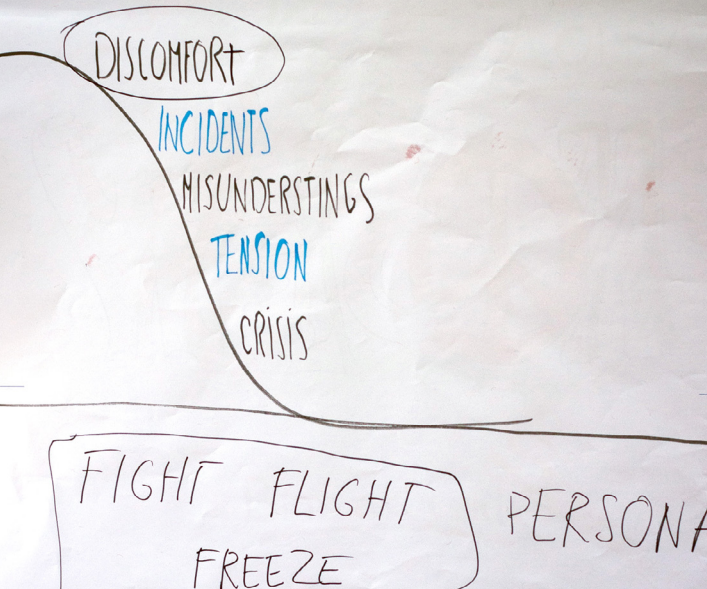 DISCOMFORT
INCIDENTS
MISUNDERSTINGS
TENSION
CRISIS
FIGHT FLIGHT
FREEZE
PERSONA